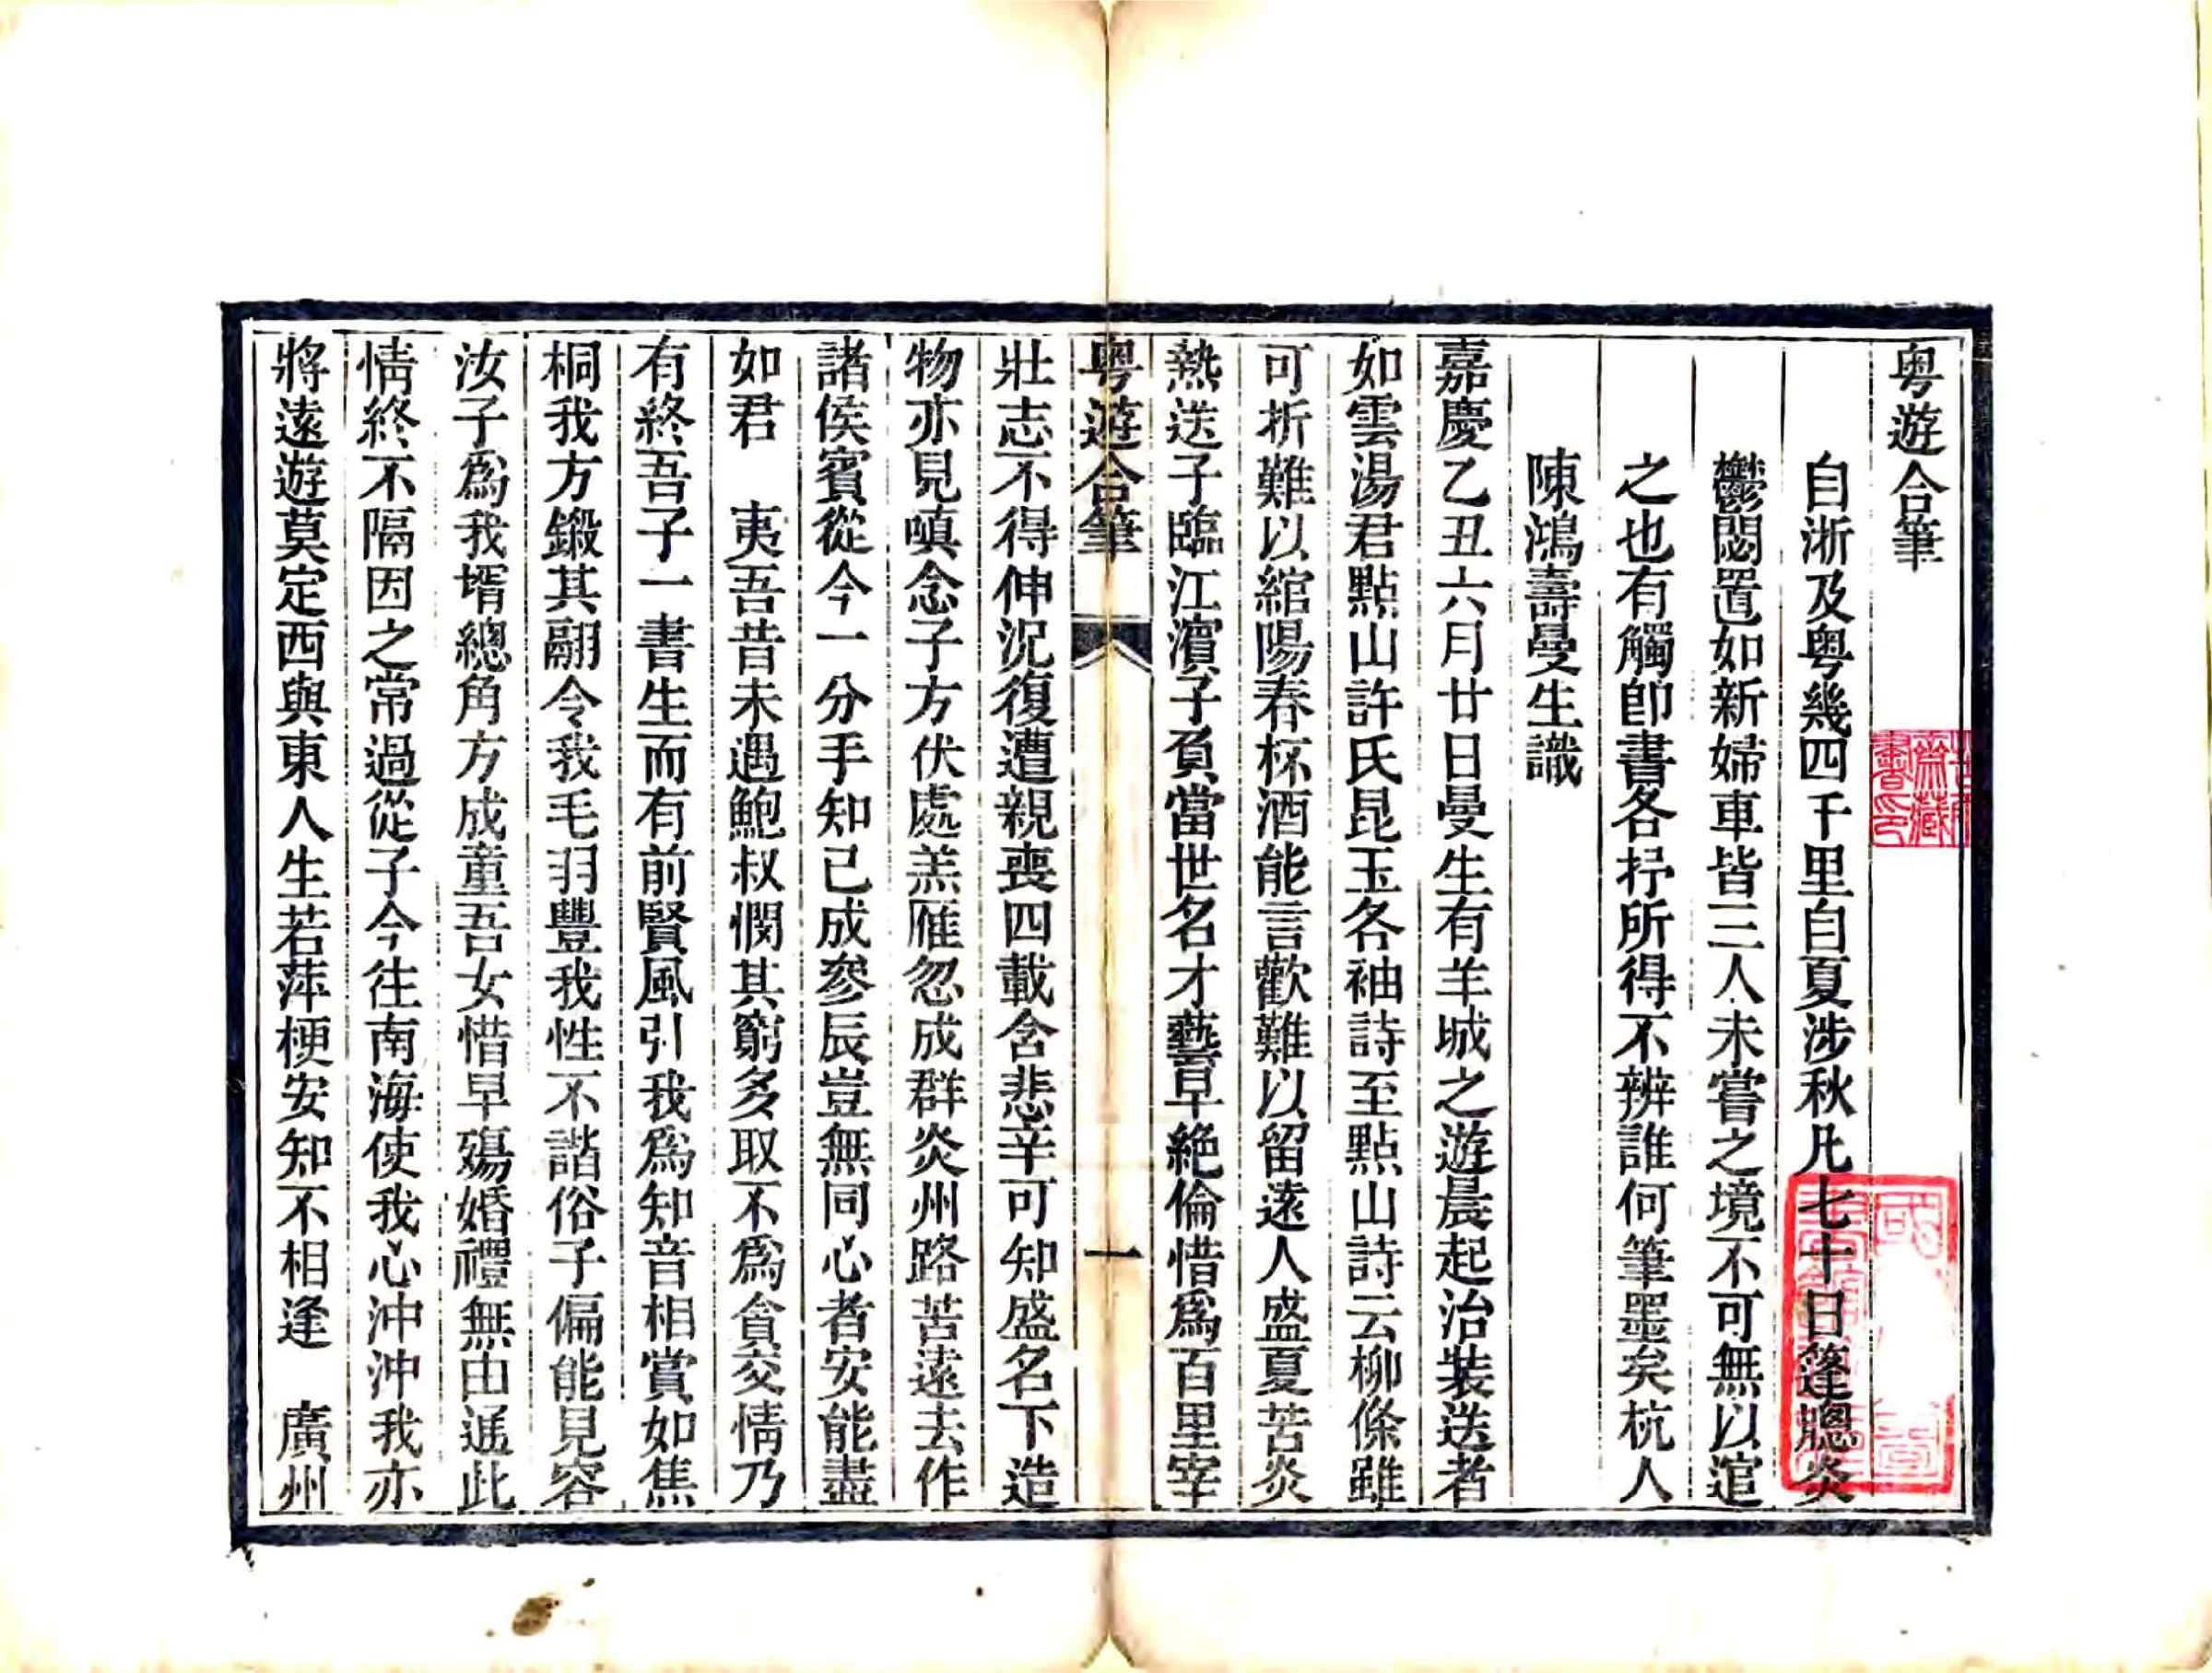 粤遊合筆
自淅及粤幾四千里自夏涉秋凡七十日篷牕炎
鬱悶置如新婦車皆三人未嘗之境不可無以逭
之也有觸卽書各抒所得不辨誰何筆墨矣杭人
陳鴻壽曼生識
嘉慶乙丑六月廿日曼生有羊城之遊晨起治裝送者
如雲湯君點山許氏昆玉各袖詩至點山詩云柳條雖
可折難以綰陽春杯酒能言歡難以留遠人盛夏苦炎
熱送子臨江濵子負當世名才藝早絶倫惜爲百里宰
粤遊合筆
一
壯志不得伸況復遭親喪四載含悲辛可知盛名下造
物亦見嗔念子方伏處羔雁忽成群炎州路苦遠去作
諸侯賓從今一分手知已成參辰豈無同心者安能盡
如君　夷吾昔未遇鮑叔憫其窮多取不爲貪交情乃
有終吾子一書生而有前賢風引我爲知音相賞如焦
桐我方鍛其翮令我毛羽豐我性不諧俗子偏能見容
汝子爲我壻總角方成童吾女惜早殤婚禮無由通此
情終不隔因之常過從子今往南海使我心沖沖我亦
將遠遊莫定西與東人生若萍梗安知不相逢　廣州